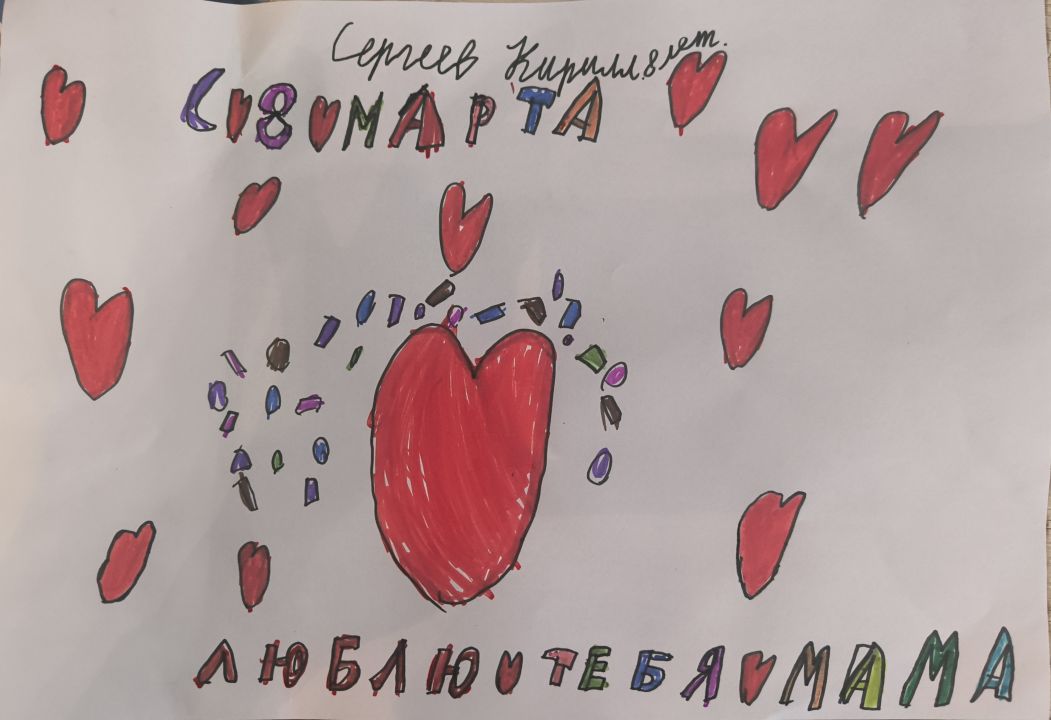 Сергеев Кирилл 8 лет.
С 8 МАРТА
ЛЮБЛЮ ТЕБЯ МАМА